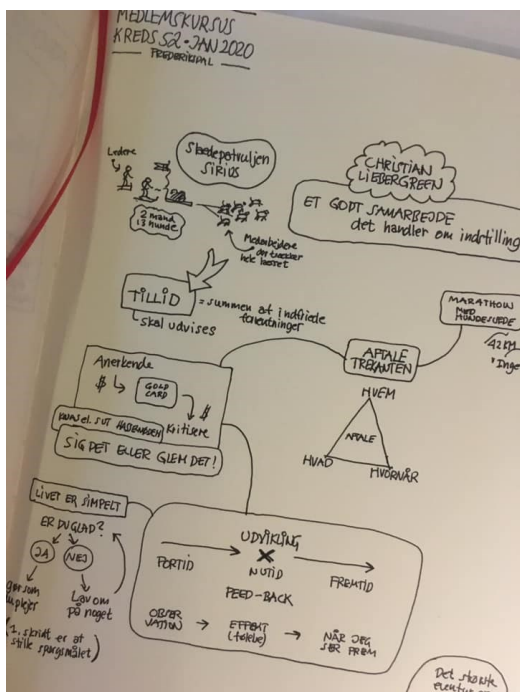 MEDLEMSKURSUS
KREDS 52 - JAN 2020
FREDERIKSDAL
Ledere
Slædepatruljen
SIRIUS
2 mand
13 hunde
Medarbejdere
der trækker
hele læsset
CHRISTIAN
LIEBERGREEN
ET GODT SAMARBEJDE
det handler om indstilling
TILLID
= summen af indfriede
forventninger
skal udvises
MARATHON
MED
HUNDESLÆDE
42 KM
AFTALE
TREKANTEN
HVEM
AFTALE
HVAD
HVORNÅR
Anerkende
$
GOLD
CARD
$
Kritisere
SIG DET ELLER GLEM DET!
LIVET ER SIMPELT
ER DU GLAD?
JA
NEJ
gør som
Lav om
på noget
(1. skridt er at
stille spørgsmålet)
UDVIKLING
FORTID
NUTID
FREMTID
FEED-BACK
OBSER
VATION
EFFEKT
(følelse)
NÅR JEG
SER FREM
Det største